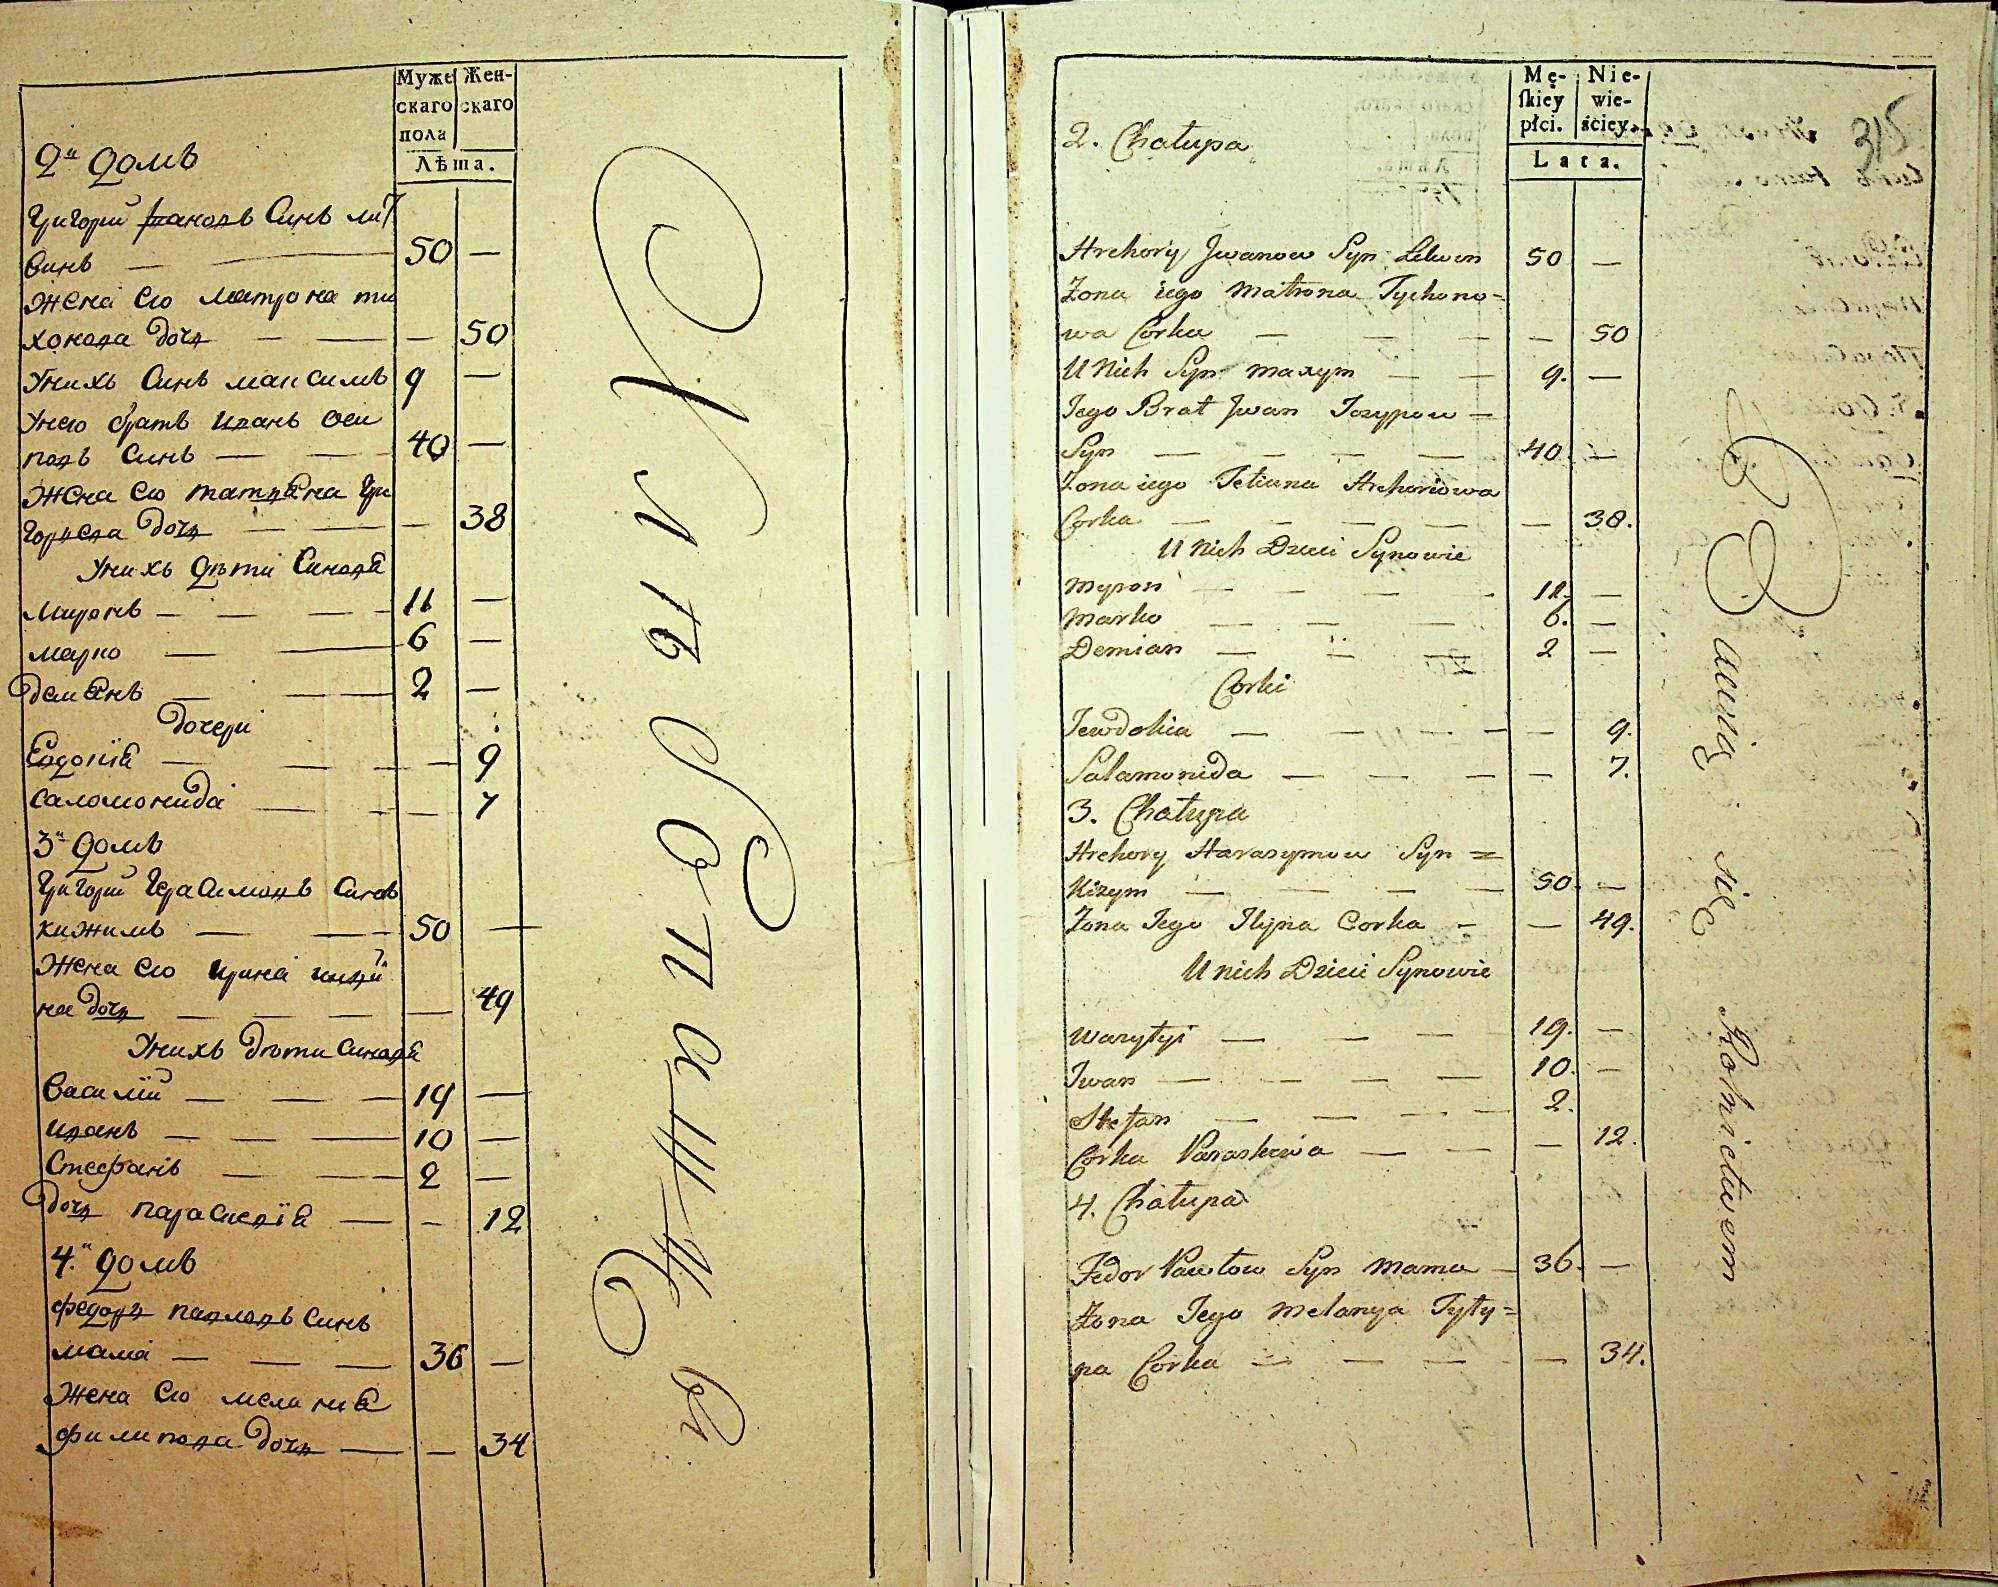 Муже
скаго
пола
Жен-
скаго
Лѣта.
2й домъ
Григорий Ивановъ Синъ лит
винъ — — 50 —
Жена Его матрона ти
хонова дочь — — — 50
Унихъ Синъ максимъ 9 —
Унего братъ иванъ оси
повъ Синъ — — 40 —
Жена Его татияна гри
гориева дочь — — — 38
Унихъ дѣти Синовя
миронъ — — — 11 —
марко — — 6 —
демянъ — — 2 —
дочери
Евдокия — — — — 9
саломонида — — — 7
3й домъ
Григорий Герасимовъ Синъ
кижимъ — — 50 —
Жена Его ирина
на дочь — — — — 49
Унихъ дѣти Синовя
Василий — — — 19 —
иванъ — — — 10 —
Стефанъ — — 2 —
дочь параскевия — — 12
4й домъ
федоръ павловъ синъ
мама — — — 36 —
Жена Его мелания
филипова дочь — — 34
Хлѣбопашцы
Mę-
ſkiey
płci.
Nie-
wie-
ściey.
Lata.
315
2. Chałupa
Hrehory Jwanow Syn Litwin 50 —
Żona iego Matrona Tychono=
wa Corka — — — — 50
U Nich Syn maxym — — 9. —
Jego Brat Jwan Jozypow —
Syn — — — — 40. —
Żona iego Tetiana Hrehoriowa
Corka — — — — — 38.
U Nich Dzieci Synowie
Myron — — — - 12. —
Marko — — — 6. —
Demian — — — 2 —
Corki
Jewdokia — — — - — 9.
Salamonida — — — — 7.
3. Chałupa
Hrehory Harasymow Syn =
Kizym — — — — 50. —
Żona Jego Ilijna Corka - — 49.
U nich Dzieci Synowie
Wasylyi — — — 19. —
Jwan — — — — 10. —
Stefan — — — — 2.
Corka Paraskewia — — — 12.
4. Chałupa
Fedor Pawłow Syn Mama — 36. —
Żona Jego Melanya Fyły=
pa Corka — — — — 34.
Bawią się Rolnictwem